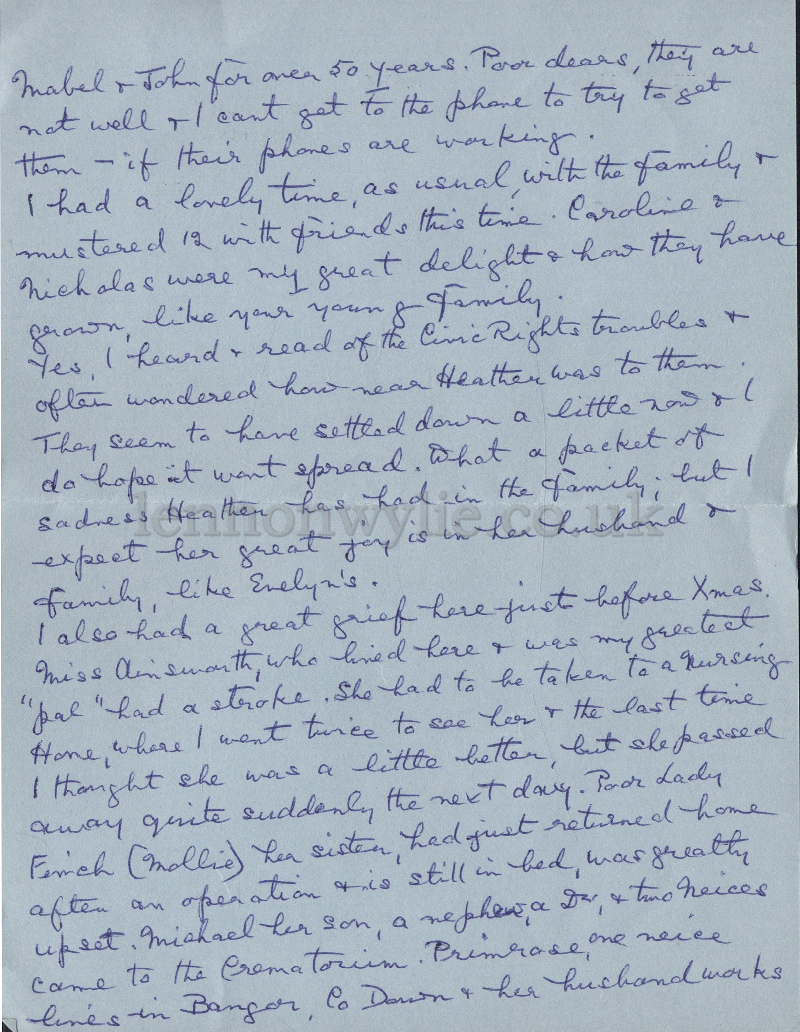 Mabel + John for over 50 years. Poor dears, they are
not well + I cant get to the phone to try to get
them – if their phones are working.
I had a lovely time, as usual, with the family +
mustered 12 with friends this time. Caroline +
Nicholas were my great delight + how they have
grown, like your young family.
Yes, I heard + read of the Civic Rights troubles +
often wondered how near Heather was to them.
They seem to have settled down a little now + I
do hope it wont spread. What a packet of
sadness Heather has had in the family; but I
lennonwylie.co.uk
expect her great joy is in her husband +
family, like Evelyn's.
I also had a great grief here just before Xmas.
Miss Ainsworth, who lived here + was my greatest
"pal" had a stroke. She had to be taken to a Nursing
Home, where I went twice to see her + the last time
I thought she was a little better, but she passed
away quite suddenly the next day. Poor Lady
Finch (Mollie) her sister, had just returned home
after an operation + is still in bed, was greatly
upset. Michael her son, a nephew, a Dr, + two Neices
came to the Crematorium. Primrose, one neice
lives in Bangor, Co Down + her husband works